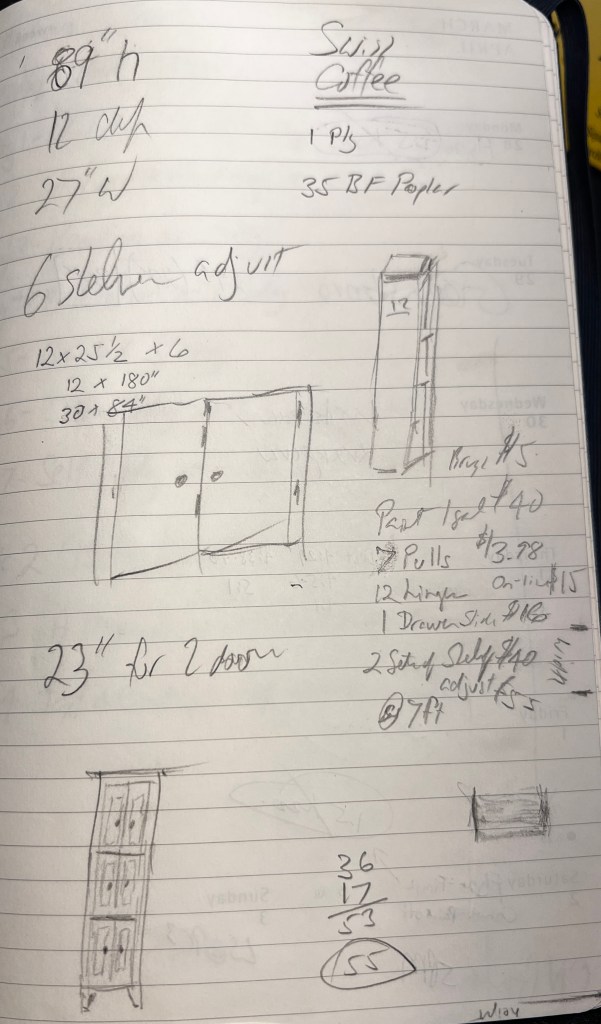 89" h
12 dep
27" W
Swiss
Coffee
1 Ply
35 BF Poplar
6 shelves adjust
12 x 25 1/2 x 6
12 x 180"
30 x 84"
12
$15
Paint 1 gal $40
7 Pulls $13.98
12 hinges on-line $15
1 Drawer Slide
2 Set of Shelf $40
adjust
@ 7ft
width
23" for 2 doors
36
17
53
55